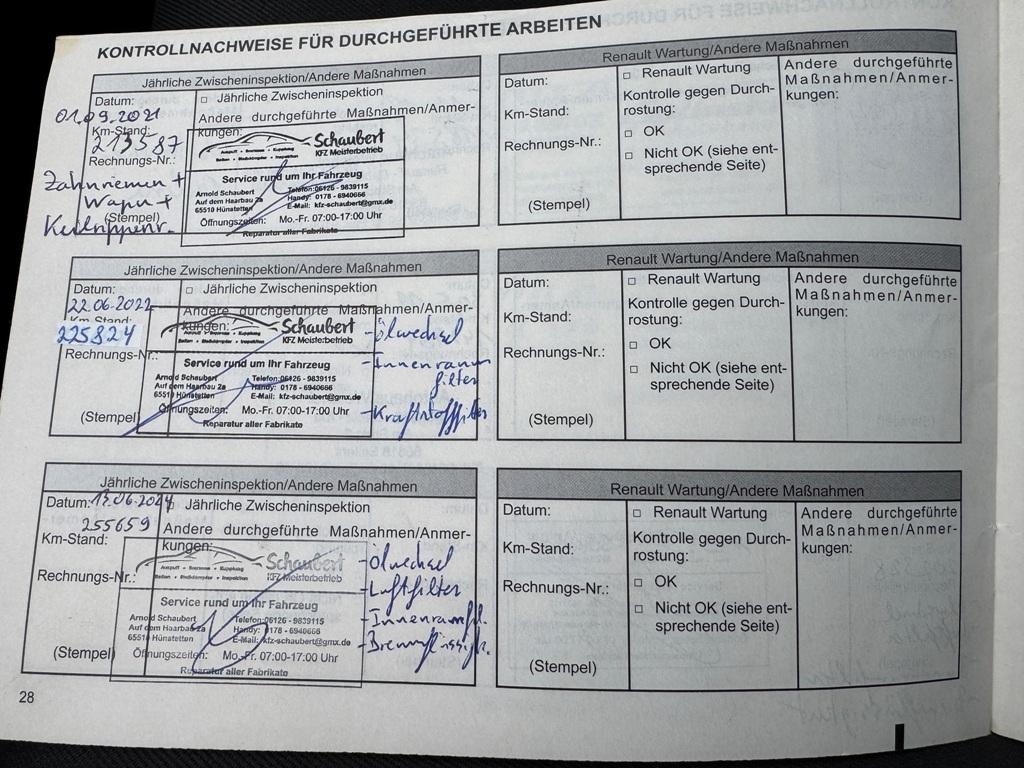 KONTROLLNACHWEISE FÜR DURCHGEFÜHRTE ARBEITEN
Jährliche Zwischeninspektion/Andere Maßnahmen
Datum:
01.09.2021
Km-Stand:
213587
Rechnungs-Nr.:
Zahnriemen +
Wapu +
(Stempel)
Keilrippenr.
□ Jährliche Zwischeninspektion
Andere durchgeführte Maßnahmen/Anmer-
kungen:
Schaubert
KFZ Meisterbetrieb
Auspuff • Bremsen • Kupplung
Reifen • Stoßdämpfer • Inspektion
Service rund um Ihr Fahrzeug
Arnold Schaubert
Auf dem Haarbau 2a
65510 Hünstetten
Telefon:06126 - 9839115
Handy: 0178 - 6940666
E-Mail: kfz-schaubert@gmx.de
Öffnungszeiten: Mo.-Fr. 07:00-17:00 Uhr
Reparatur aller Fabrikate
Renault Wartung/Andere Maßnahmen
Datum:
Km-Stand:
Rechnungs-Nr.:
(Stempel)
□ Renault Wartung
Kontrolle gegen Durch-
rostung:
□ OK
□ Nicht OK (siehe ent-
sprechende Seite)
Andere durchgeführte
Maßnahmen/Anmer-
kungen:
Jährliche Zwischeninspektion/Andere Maßnahmen
Datum:
22.06.2022
Km-Stand:
225824
Rechnungs-Nr.:
(Stempel)
□ Jährliche Zwischeninspektion
Andere durchgeführte Maßnahmen/Anmer-
kungen:
Schaubert
KFZ Meisterbetrieb
Auspuff • Bremsen • Kupplung
Reifen • Stoßdämpfer • Inspektion
Service rund um Ihr Fahrzeug
Arnold Schaubert
Auf dem Haarbau 2a
65510 Hünstetten
Telefon:06126 - 9839115
Handy: 0178 - 6940666
E-Mail: kfz-schaubert@gmx.de
Öffnungszeiten: Mo.-Fr. 07:00-17:00 Uhr
Reparatur aller Fabrikate
-Ölwechsel
-Innenraum
filter
-Kraftstofffilter
Renault Wartung/Andere Maßnahmen
Datum:
Km-Stand:
Rechnungs-Nr.:
(Stempel)
□ Renault Wartung
Kontrolle gegen Durch-
rostung:
□ OK
□ Nicht OK (siehe ent-
sprechende Seite)
Andere durchgeführte
Maßnahmen/Anmer-
kungen:
Jährliche Zwischeninspektion/Andere Maßnahmen
Datum: 17.06.2024
255659
Km-Stand:
Rechnungs-Nr.:
(Stempel)
□ Jährliche Zwischeninspektion
Andere durchgeführte Maßnahmen/Anmer-
kungen:
Schaubert
KFZ Meisterbetrieb
Auspuff • Bremsen • Kupplung
Reifen • Stoßdämpfer • Inspektion
Service rund um Ihr Fahrzeug
Arnold Schaubert
Auf dem Haarbau 2a
65510 Hünstetten
Telefon:06126 - 9839115
Handy: 0178 - 6940666
E-Mail: kfz-schaubert@gmx.de
Öffnungszeiten: Mo.-Fr. 07:00-17:00 Uhr
Reparatur aller Fabrikate
-Ölwechsel
-Luftfilter
-Innenraumfil.
-Bremsflüssigk.
Renault Wartung/Andere Maßnahmen
Datum:
Km-Stand:
Rechnungs-Nr.:
(Stempel)
□ Renault Wartung
Kontrolle gegen Durch-
rostung:
□ OK
□ Nicht OK (siehe ent-
sprechende Seite)
Andere durchgeführte
Maßnahmen/Anmer-
kungen:
28